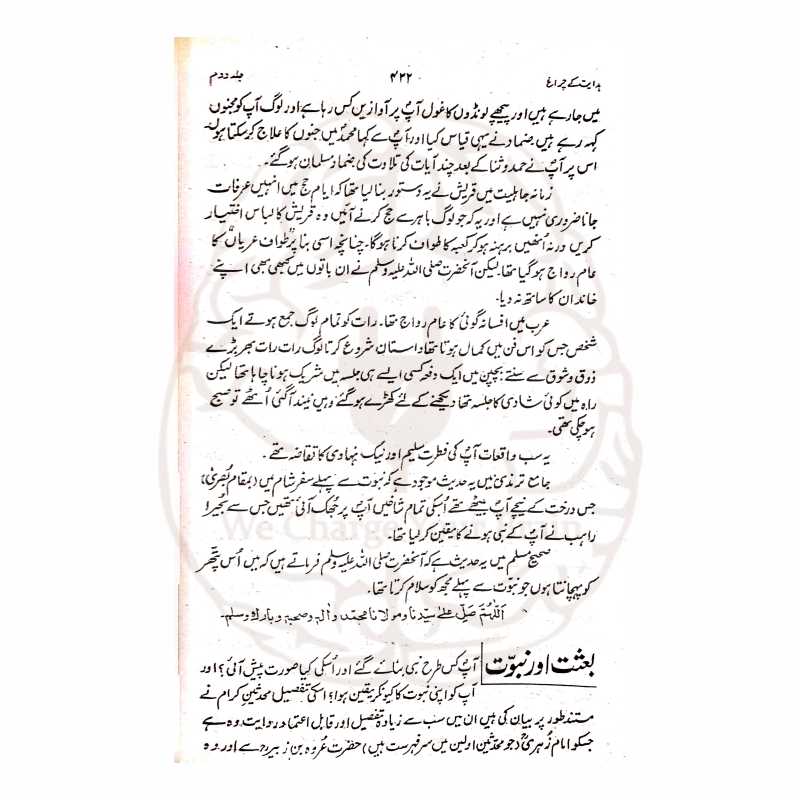 ہدایت کے چراغ ۴۲۲ جلد دوم
میں جا رہے ہیں اور پیچھے لونڈوں کا غول آپؐ پر آوازیں کس رہا ہے اور لوگ آپ کو مجنوں
کہہ رہے ہیں ضماد نے یہی قیاس کیا اور آپؐ سے کہا محمدؐ میں جنوں کا علاج کر سکتا ہوں۔
اس پر آپؐ نے حمد و ثنا کے بعد چند آیات کی تلاوت کی ضماد مسلمان ہو گئے۔
زمانہ جاہلیت میں قریش نے یہ دستور بنا لیا تھا کہ ایام حج میں انہیں عرفات
جانا ضروری نہیں ہے اور یہ کہ جو لوگ باہر سے حج کرنے آئیں وہ قریش کا لباس اختیار
کریں ورنہ اُنھیں برہنہ ہو کر کعبہ کا طواف کرنا ہوگا۔ چنانچہ اسی بنا پر "طواف عریاں" کا
عام رواج ہو گیا تھا۔ لیکن آنحضرت صلی اللہ علیہ وسلم نے ان باتوں میں کبھی بھی اپنے
خاندان کا ساتھ نہ دیا۔
عرب میں افسانہ گوئی کا عام رواج تھا۔ رات کو تمام لوگ جمع ہوتے ایک
شخص جس کو اس فن میں کمال ہوتا تھا داستان شروع کرتا لوگ رات رات بھر بڑے
ذوق و شوق سے سنتے بچپن میں ایک دفعہ کسی ایسے ہی جلسہ میں شریک ہونا چاہا تھا لیکن
راہ میں کوئی شادی کا جلسہ تھا دیکھنے کے لئے کھڑے ہو گئے وہیں نیند آگئی اُٹھے تو صبح
ہو چکی تھی۔
یہ سب واقعات آپؐ کی فطرت سلیم اور نیک نہادی کا تقاضہ تھے۔
جامع ترمذی میں یہ حدیث موجود ہے کہ نبوت سے پہلے سفر شام میں (بمقام بُصریٰ)
جس درخت کے نیچے آپؐ بیٹھے تھے اُسکی تمام شاخیں آپؐ پر جُھک آئی تھیں جس سے بُحیرا
راہب نے آپؐ کے نبی ہونے کا یقین کر لیا تھا۔
صحیح مسلم میں یہ حدیث ہے کہ آنحضرت صلی اللہ علیہ وسلم فرماتے ہیں کہ میں اُس پتھر
کو پہچانتا ہوں جو نبوّت سے پہلے مجھ کو سلام کرتا تھا۔
اَللّٰهُمَّ صَلِّی عَلیٰ سیّدنا و مولانا محمّد و اٰلہٖ وصحبہٖ و بارک وسلم۔
بعثت اور نبوّت آپؐ کس طرح نبی بنائے گئے اور اُسکی کیا صورت پیش آئی؟ اور
آپ کو اپنی نبوت کا کیونکر یقین ہوا؟ اسکی تفصیل محدثین کرام نے
مستند طور پر بیان کی ہیں ان میں سب سے زیادہ تفصیل اور قابل اعتماد روایت وہ ہے
جسکو امام زُہریؒ (جو محدثین اولین میں سرفہرست ہیں) حضرت عُروہ بن زبیر رح سے اور وہ
We Change Your Brain